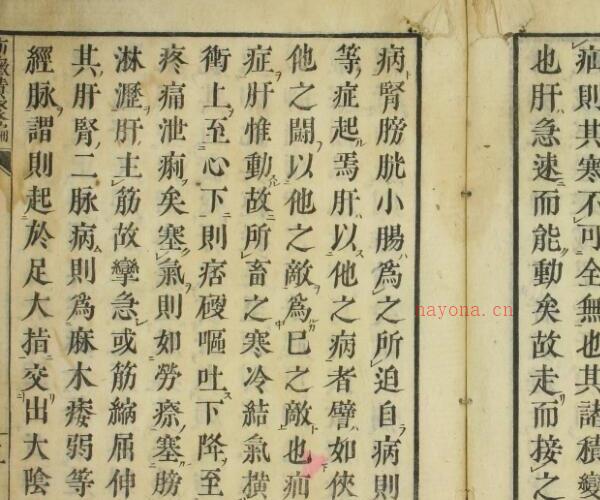 疝則其寒不可全無也其諸積變
也肝急速而能動矣故走而接之
病腎膀胱小腸為之所迫自病則
等症起焉肝以他之病者譬如俠
他之鬪以他之敵為已之敵也疝
症肝惟動故所畜之寒冷結氣橫
衝上至心下則痞硬嘔吐下降至
疼痛泄痢矣塞氣則如勞瘵塞膀
淋瀝肝主筋故攣急或筋縮屈伸
其肝腎二脉病則為麻木痿弱等
經脉謂則起於足大指交出大陰
nayona.cn